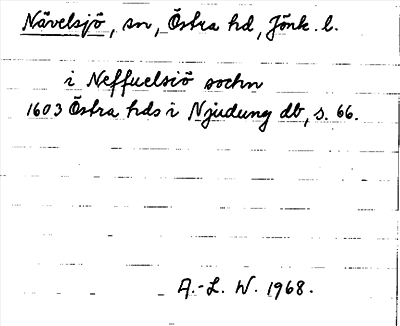 Nävelsjö, sn, Östra hd, Jönk. l.
i Neffuelsiö sochn
1603 Östra hds i Njudung db, s. 66.
A.-L. W. 1968.